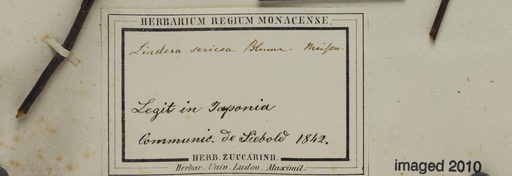 HERBARIUM REGIUM MONACENSE.
Lindera sericea Blume. Meißn.
Legit in Japonia
Communic. de Siebold 1842.
HERB. ZUCCARINII.
Herbar. Univ. Ludov. Maximil.
imaged 2010